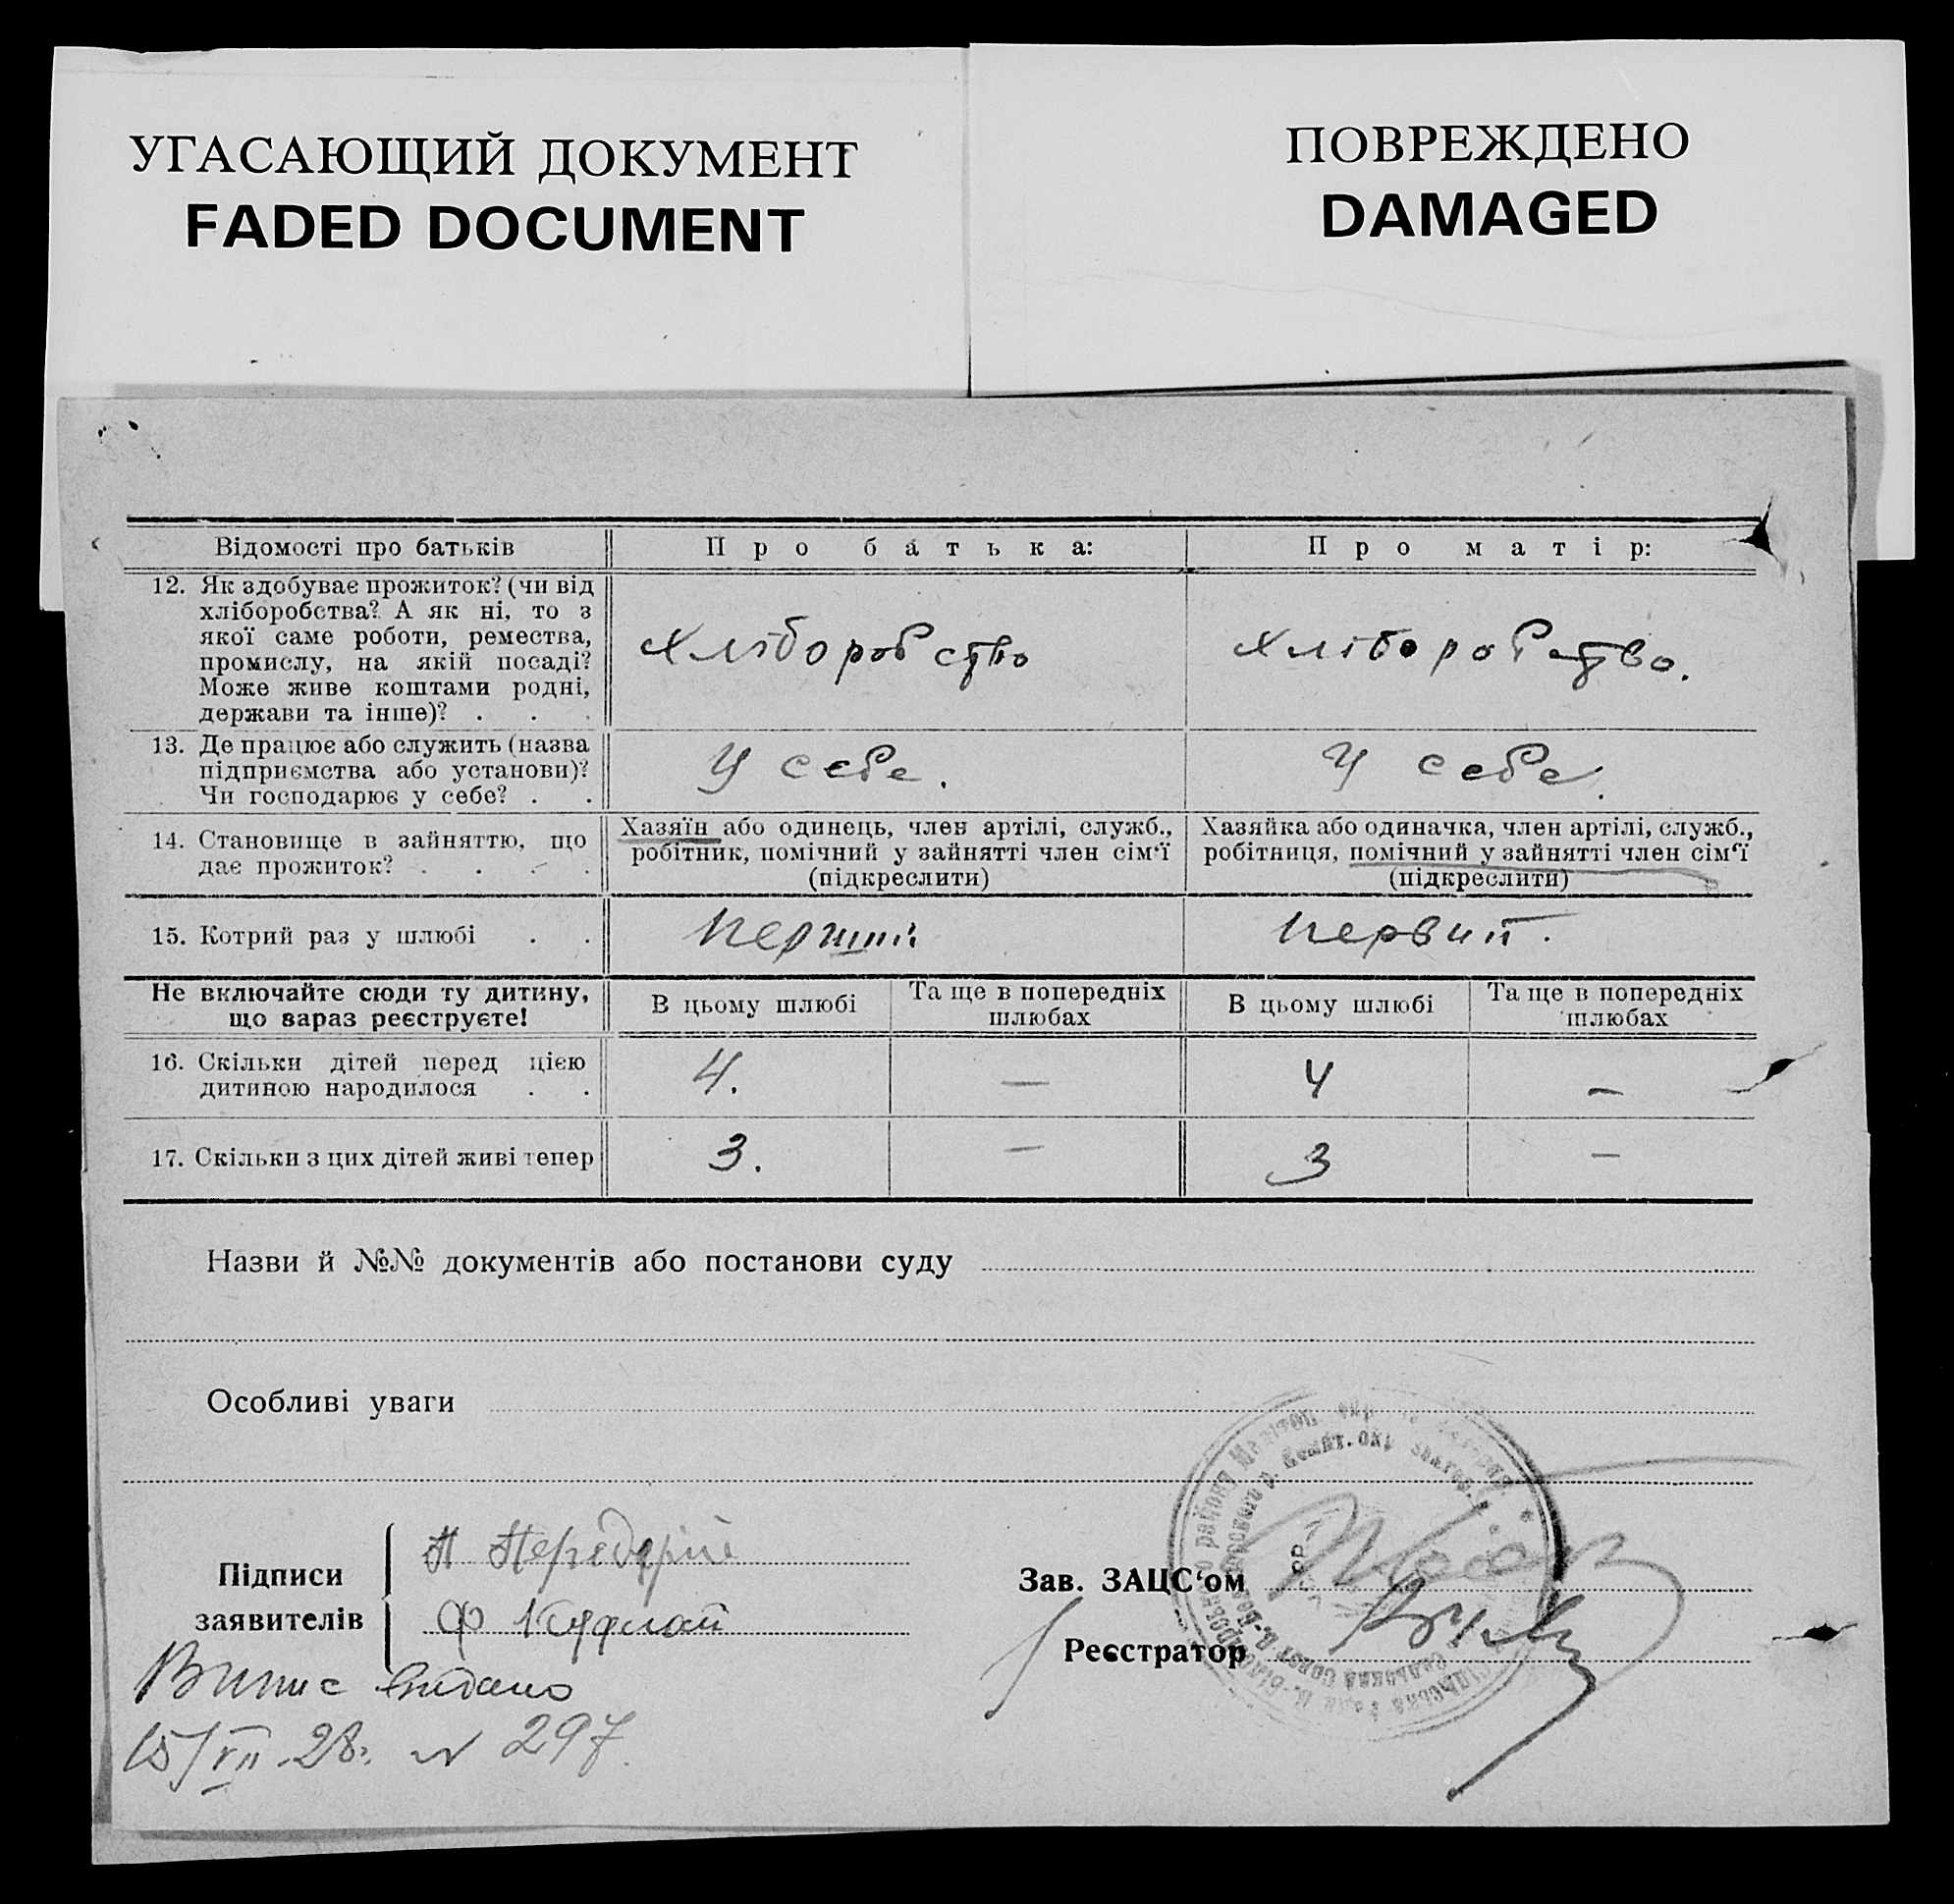 УГАСАЮЩИЙ ДОКУМЕНТ
FADED DOCUMENT
ПОВРЕЖДЕНО
DAMAGED
Відомості про батьків
Про батька:
Про матір:
12. Як здобуває прожиток? (чи від
хліборобства? А як ні, то з
якої саме роботи, ремества,
промислу, на якій посаді?
Може живе коштами родні,
держави та інше)? . . .
Хліборобство
Хліборобство.
13. Де працює або служить (назва
підприємства або установи)?
Чи господарює у себе? . .
У себе.
У себе.
14. Становище в зайняттю, що
дає прожиток? . . . .
Хазяїн або одинець, член артілі, служб.,
робітник, помічний у зайнятті член сім‘ї
(підкреслити)
Хазяйка або одиначка, член артілі, служб.,
робітниця, помічний у зайнятті член сім‘ї
(підкреслити)
15. Котрий раз у шлюбі . .
Перший
Первий.
Не включайте сюди ту дитину,
що зараз реєструєте!
В цьому шлюбі
Та ще в попередніх
шлюбах
В цьому шлюбі
Та ще в попередніх
шлюбах
16. Скільки дітей перед цією
дитиною народилося . .
4.
—
4
—
17. Скільки з цих дітей живі тепер
3.
—
3
—
Назви й №№ документів або постанови суду
Особливі уваги
Підписи
заявителів
Зав. ЗАЦС‘ом
Реєстратор
Випис видано
15/VII 28. N 297.